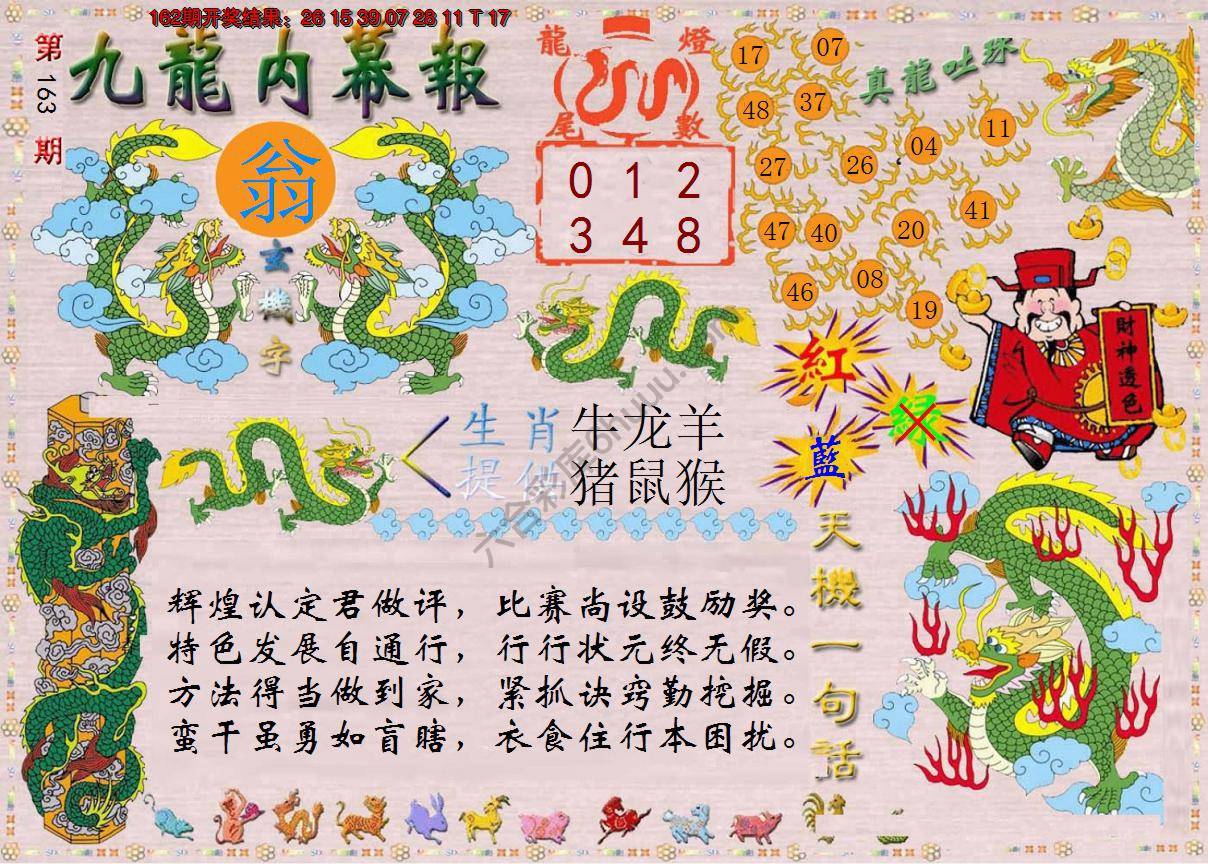 162期开奖结果：26 15 39 07 28 11 T 17
第163期
九龍内幕報
龍燈
尾數
0 1 2
3 4 8
真龍吐珠
17 07
48 37
04 11
27 26
41
47 40 20
46 08
19
翁
玄機字
財神透色
紅
绿
藍
生肖 牛龙羊
提供 猪鼠猴
天機一句話
辉煌认定君做评，比赛尚设鼓励奖。
特色发展自通行，行行状元终无假。
方法得当做到家，紧抓诀窍勤挖掘。
蛮干虽勇如盲瞎，衣食住行本困扰。